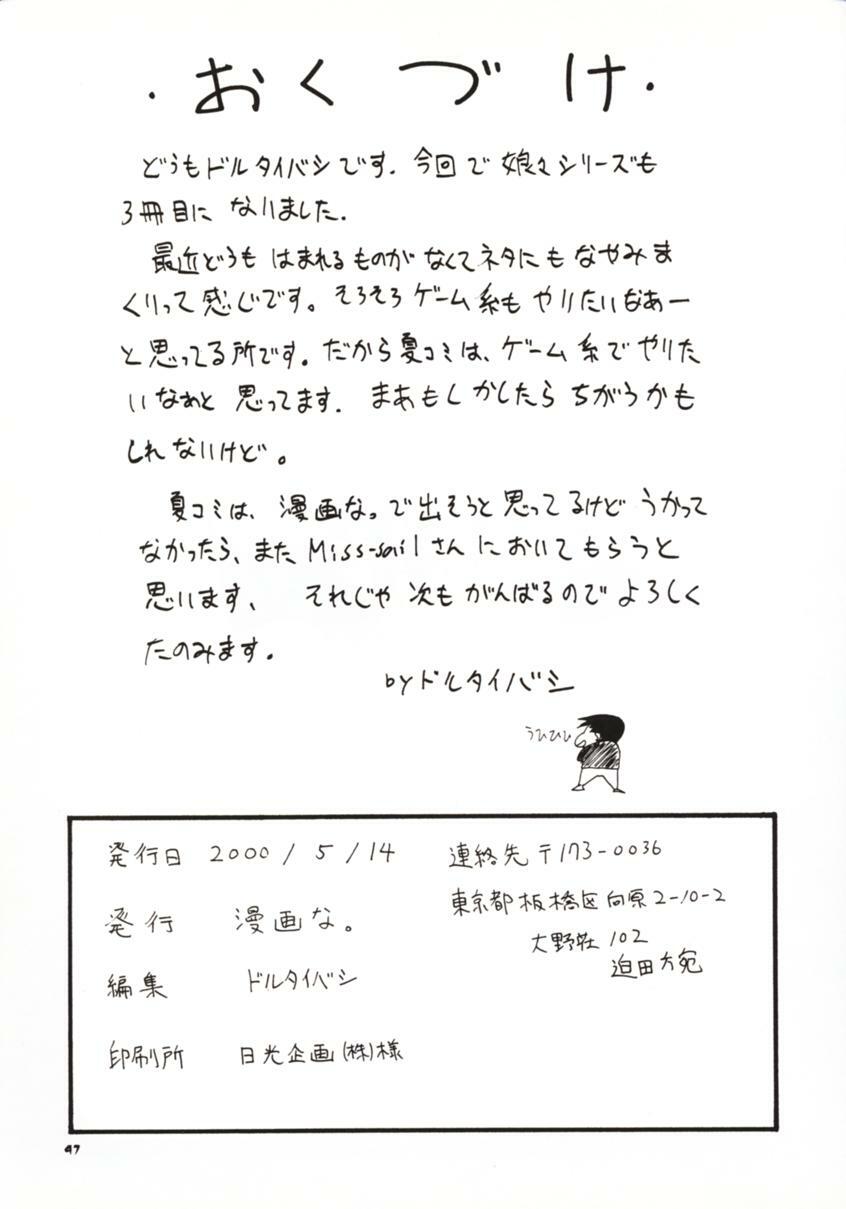 ・おくづけ・
どうもドルタイバシです。今回で娘々シリーズも
3冊目になりました.
最近どうもはまれるものがなくてネタにもなやみま
くりって感じです。そろそろゲーム系もやりたいなあー
と思ってる所です。だから夏コミは、ゲーム系でやりた
いなぁと思ってます. まあもしかしたらちがうかも
しれないけど。
夏コミは、漫画な。で出そうと思ってるけどうかって
なかったら、またMiss-sailさんにおいてもらうと
思います、 それじゃ次もがんばるのでよろしく
たのみます。
byドルタイバシ
うひひひ
発行日 2000/5/14
発行 漫画な。
編集 ドルタイバシ
印刷所 日光企画(株)様
連絡先 〒173-0036
東京都板橋区向原2-10-2
大野荘 102
迫田方宛
47